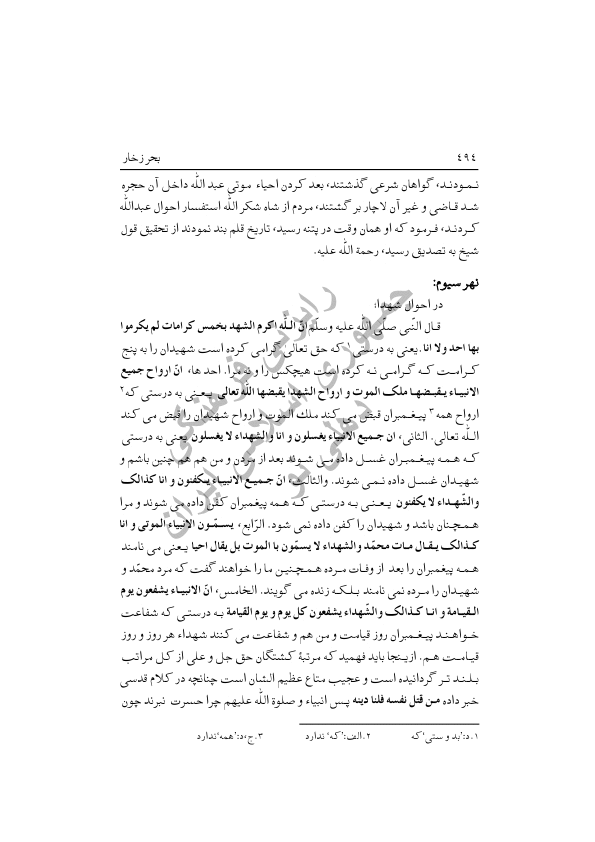 ٤٩٤ بحر زخار
نـمـودنـد، گواهان شرعی گذشتند، بعد کردن احیاء موتی عبد اللّٰه داخل آن حجره
شـد قـاضی و غیر آن لاچار بر گشتند، مردم از شاه شکر اللّٰه استفسار احوال عبداللّٰه
کـردنـد، فـرمود که او همان وقت در پتنه رسید، تاریخ قلم بند نمودند از تحقیق قول
شیخ به تصدیق رسید، رحمة اللّٰه علیه.
نهر سیوم:
در احوال شهدا:
قـال النّبی صلّی اللّٰه علیه وسلّم انّ اللّٰه اکرم الشهد بخمس کرامات لم یکرموا
بها احد ولا انا. یعنی به درستی۱ که حق تعالیٰ گرامی کرده است شهیدان را به پنج
کـرامـت کـه گـرامـی نـه کرده است هیچکس را و نه مرا. احد ها، انّ ارواح جمیع
الانبیـاء یـقبضـهـا ملک الموت و ارواح الشهدا یقبضها اللّٰه تعالی یـعـنی به درستی که۲
ارواح همه۳ پیـغـمبـران قبض می کند ملك الموت و ارواح شهیدان را قبض می کند
اللّٰه تعالی. الثانی، ان جـمیع الانبیاء یغسلون و انا والشهداء لا یغسلون یعنی به درستی
کـه هـمـه پیـغـمبـران غسـل داده مـی شـوند بعد از مردن و من هم هم چنین باشم و
شهیـدان غسـل داده نـمـی شوند. والثالث، انّ جـمیع الانبیـاء یـکفنون و انا کذالک
والشّهـداء لا یکفنون یـعـنـی بـه درستـی کـه همه پیغمبران کفن داده می شوند و مرا
هـمـچنان باشد و شهیدان را کفن داده نمی شود. الرّابع، یسمّـون الانبیاء الموتی و انا
کـذالک یـقـال مـات محمّد والشهداء لا یسمّون با الموت بل یقال احیا یـعنی می نامند
هـمـه پیغمبران را بعد از وفات مـرده هـمـچـنیـن ما را خواهند گفت که مرد محمّد و
شهیـدان را مـرده نمی نامند بـلـکـه زنده می گویند. الخامس، انّ الانبیـاء یشفعون یوم
الـقیـامة و انـا کـذالک والشّهداء یشفعون کل یوم و یوم القیامة بـه درستـی که شفاعت
خـواهـنـد پیـغـمبران روز قیامت و من هم و شفاعت می کنند شهداء هر روز و روز
قیـامـت هـم. ازیـنجا باید فهمید که مرتبهٔ کشتگان حق جل و علی از کـل مراتب
بـلـنـد تـر گردانیده است و عجیب متاع عظیم الشان است چنانچه در کلام قدسی
خبر داده مـن قتل نفسه فلنا دینه پـس انبیاء و صلوة اللّٰه علیهم چرا حسرت نبرند چون
۱.د:'بد و ستی' که ۲.الف:'که' ندارد ۳.ج،د:'همه' ندارد